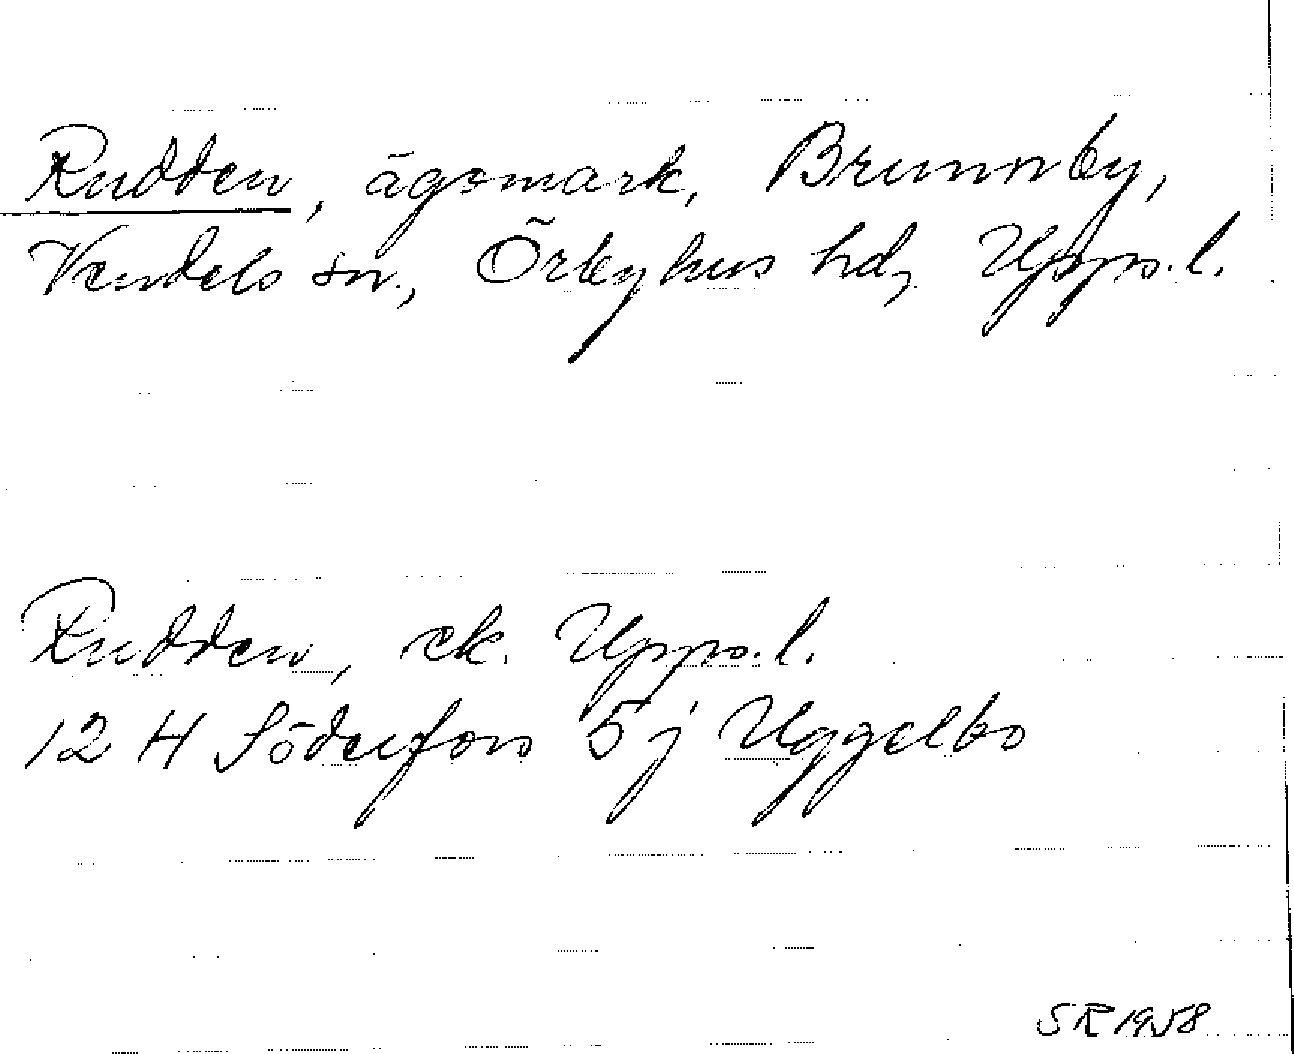 Rudden, ägomark, Brunnby,
Vendels sn., Örbyhus hd, Upps.l.
Rudden, ek. Upps.l.
12 H Söderfors 5 j Uggelbo
SR 1958